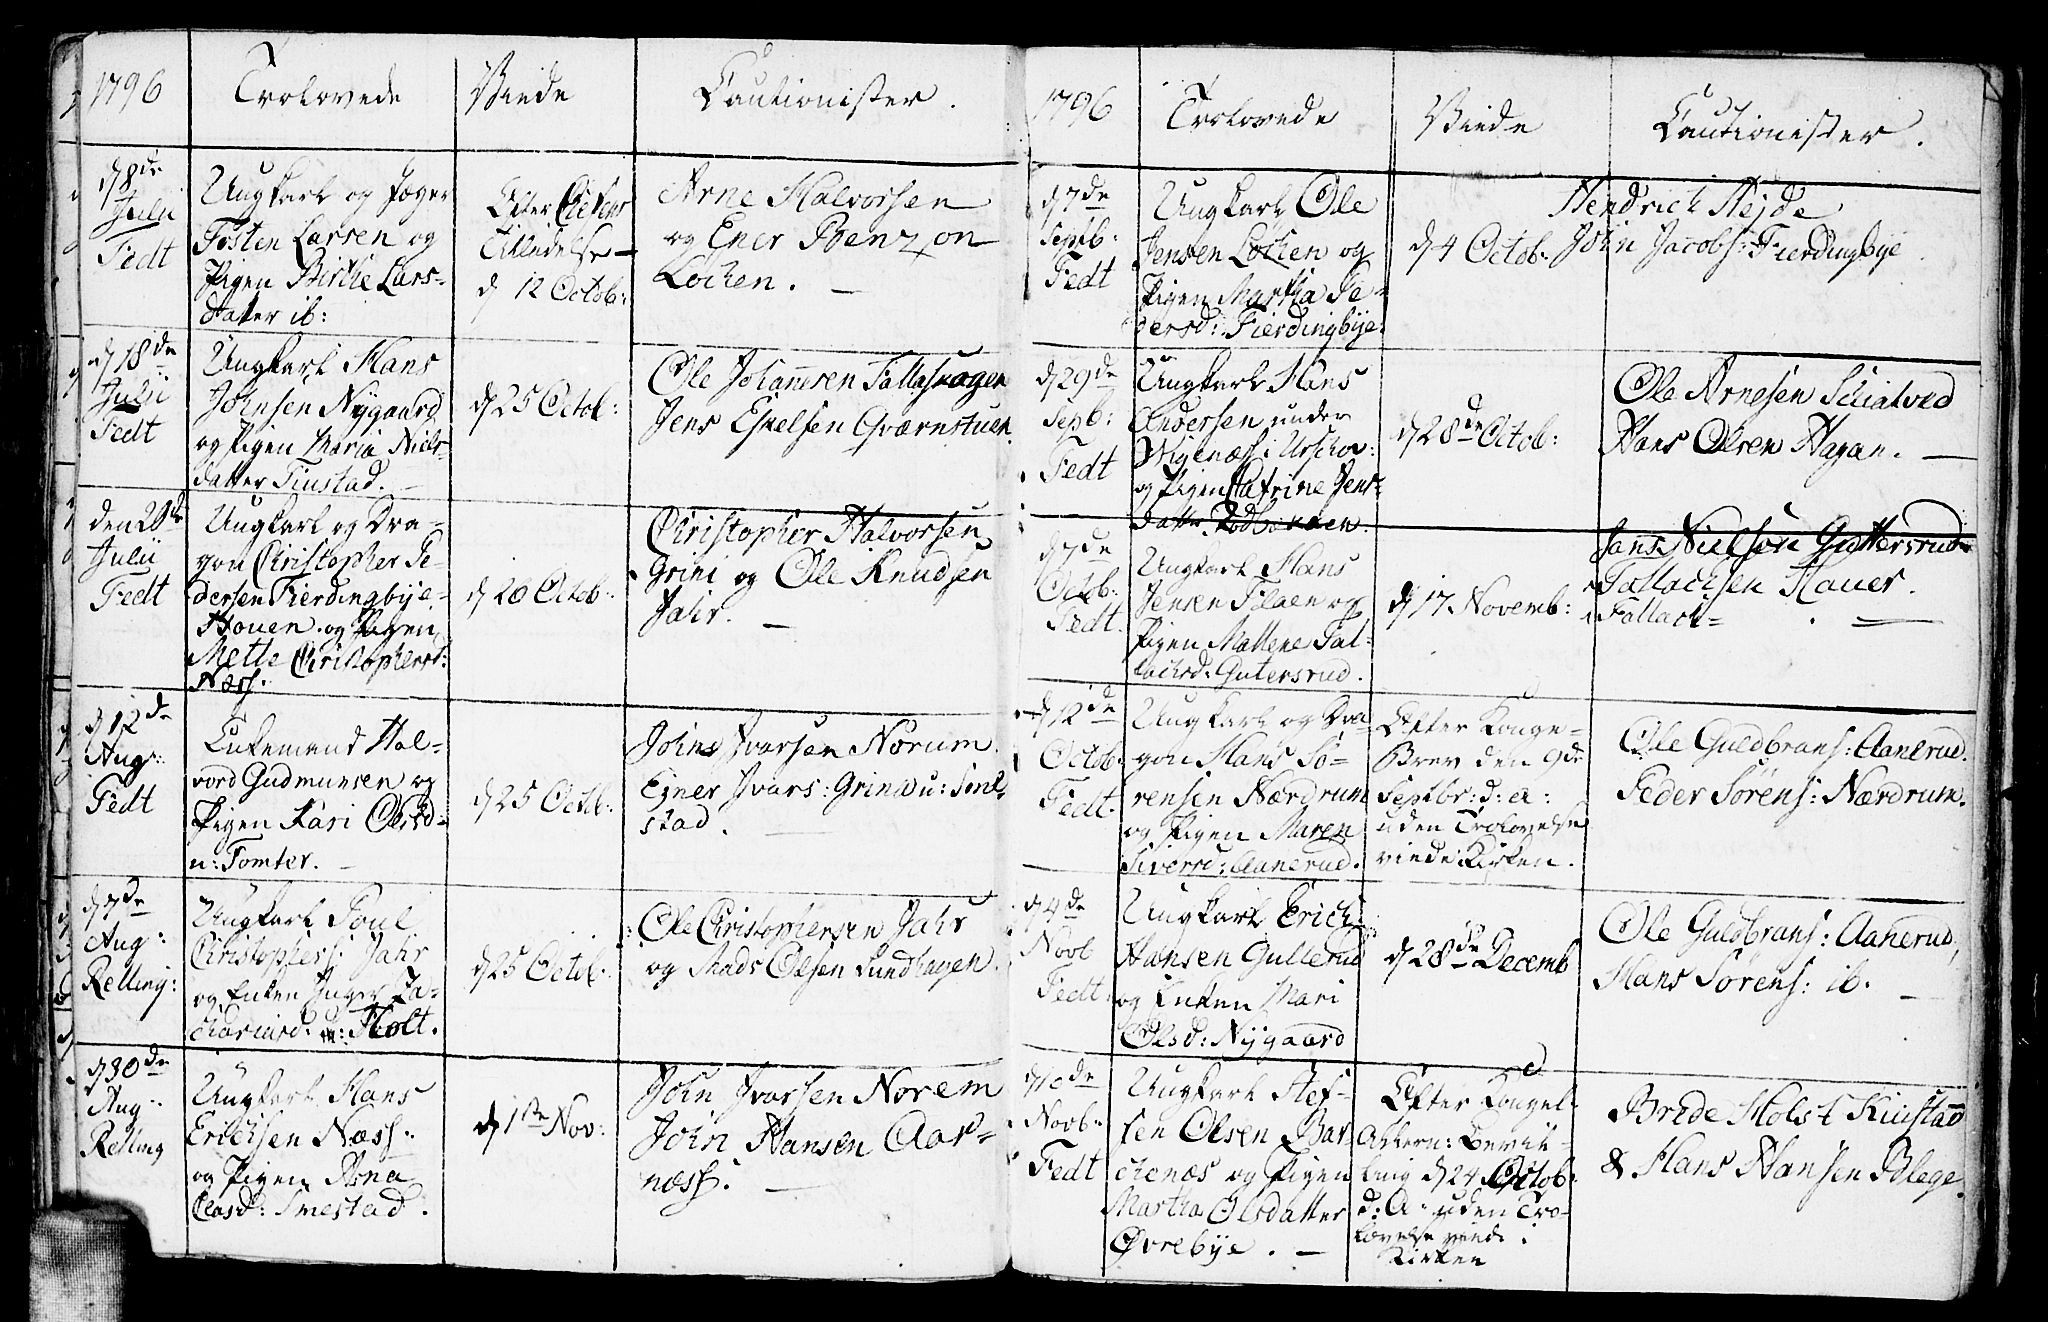 1796
Trolovede
Viede
Cautionister.
d 8de
Julii
Fedt
Ungkarl og Jæger
Tosten Larsen og
Pigen Birthe Lars-
datter ib:
Efter Chefens
Tilladelse
d 12 Octob:
Arne Halvorsen
og Ener Benzon
Lochen.
d 18de
Julii
Fedt
Ungkarl Hans
Johnsen Nygaard
og Pigen Maria Niels-
datter Finstad.
d 25 Octob:
Ole Johannesen
Jens Eskelsen Qværnstuen.
den 28de
Julii
Fedt
Ungkarl og Dra-
gon Christopher Pe-
dersen Fierdingbye-
Houen og Pigen
Mette Christophersd:
Næss.
d 26 Octob:
Christopher Halvorsen
Grini og Ole Knudsen
Jahr.
d 12de
Aug:
Fedt
Enkemand Hal-
vord Gudmunsen og
Pigen Kari Olsd-
u: Tomter.
d 25 Octb:
Johns Ivarsen Norum.
Ejner Ivars:
stad.
d 7de
Aug:
Relling:
Ungkarl Poul
Christophers: Jahr
og Enken Inger Za-
chariasd. Holt.
d 25 Octob:
Ole Christophersen Jahr
og Mads Olsen Sundhagen.
d 30de
Aug:
Relling
Ungkarl Hans
Erichsen Næss
og Pigen Anna
Olasd: Smestad.
d 1ste Nov:
John Ivarsen Norem
John Hansen Aar-
næss.
1796
Trolovede
Viede
Cautionister.
d 7de
Septb:
Fedt
Ungkarl Ole
Jensen Lochen og
Pigen Martha Pe-
dersd: Fierdingbye.
d 4 Octob:
Hendrich Hejde
John Jacobs: Fierdingbye
d 29de
Sepb:
Fedt
Ungkarl Hans
Andersen under
og Pigen Catrine Jens-
datter
d 28de Octob:
Ole Arnesen Schatved
Hans Olsen Hagan.
d 7de
Octob:
Fedt.
Ungkarl Hans
Jensen Flaen og
Pigen Mallene Tal-
lachsd: Gutersrud.
d 17 Novemb:
Jans Nielsen Guttersrud
Tallachsen Hauer.
d 12de
Octob:
Fedt.
Ungkarl og Dra-
gon Hans Sö-
rensen Nærdrum
og Pigen Maren
Siversd: Aanerud.
Efter Konge-
Brev den 9de
Septbr: d: a:
uden Trolovelse
viede i Kirken.
Ole Guldbrans: Aanerud.
Peder Sørens: Nærdrum.
d 4de
Novb
Fedt.
Ungkarl Erich
Hansen Gullerud
og Enken Mari
Olsd: Nygaard
d 28de Decemb
Ole Guldbrans: Aanerud,
Hans Sørens: ib.
d 10de
Novb:
Fedt
Ungkarl Stef-
fen Olsen Bar-
chenæs og Pigen
Martha Olsdatter
Øvrebye.
Efter Kongel:
Allern: Bevil-
ling d 24 Octob:
d: A. uden Tro-
lovelse viede i
Kirken
Brede Holst Kiustad
& Hans Hansen Blege.